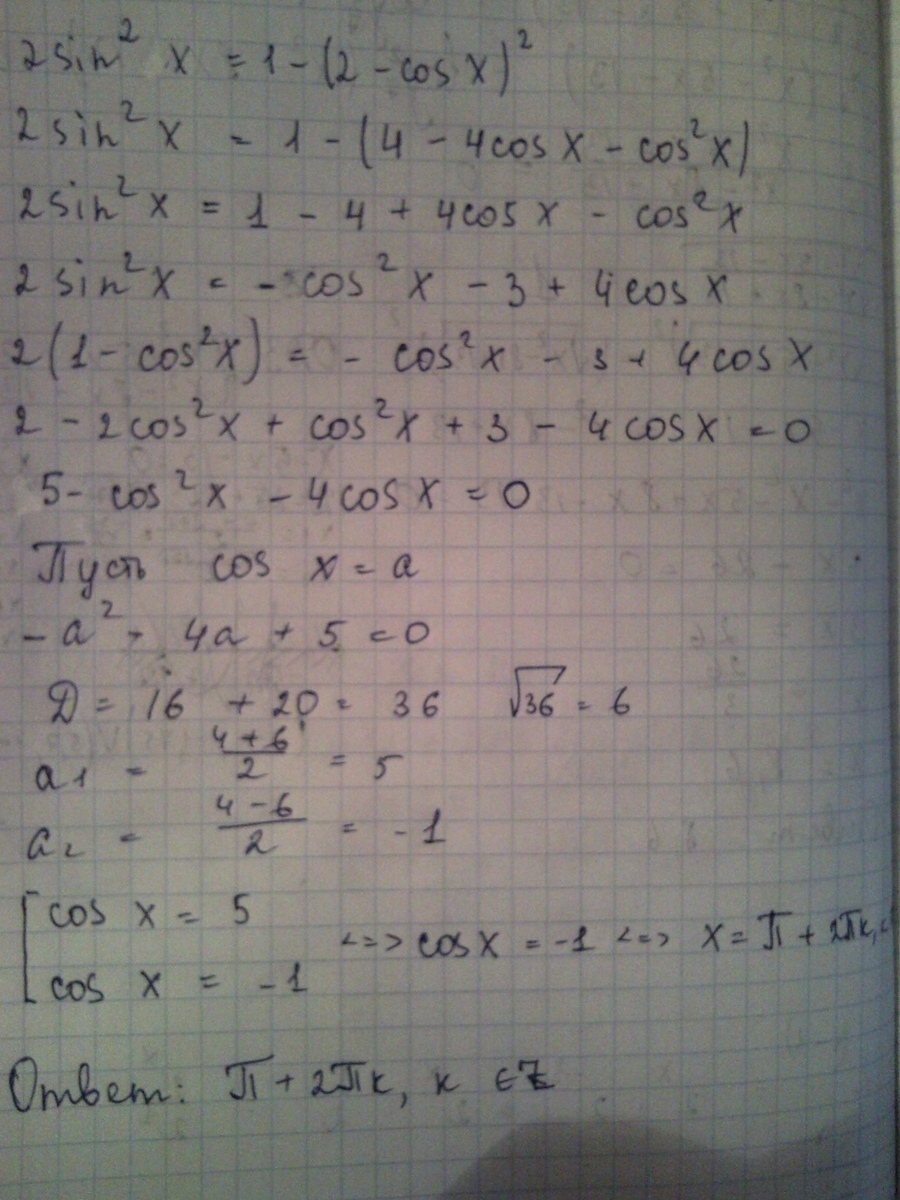 2sin² x = 1 - (2 - cos x)²
2sin² x = 1 - (4 - 4cos x - cos² x)
2sin² x = 1 - 4 + 4cos x - cos² x
2 sin² x = - cos² x - 3 + 4 cos x
2(1 - cos² x) = - cos² x - 3 + 4 cos x
2 - 2cos² x + cos² x + 3 - 4 cos x = 0
5 - cos² x - 4 cos x = 0
Пусть cos x = a
- a² - 4a + 5 = 0
Д = 16 + 20 = 36 √36 = 6
a₁ = (4 + 6)/2 = 5
a₂ = (4 - 6)/2 = - 1
[ cos x = 5
cos x = - 1 <=> cos x = -1 <=> x = П + 2Пк,
Ответ: П + 2Пк, к ∈ Z